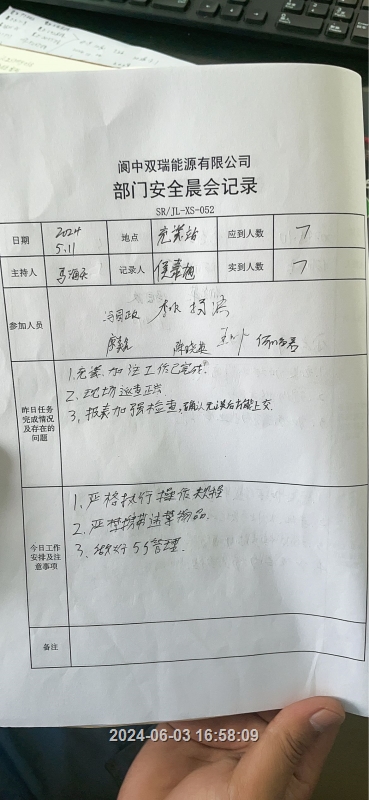 阆中双瑞能源有限公司
部门安全晨会记录
SR/JL-XS-052
日期 2024 5.11 地点 充装站 应到人数 7
主持人 记录人 实到人数 7
参加人员
昨日任务完成情况及存在的问题
1.充装、加注工作已完成.
2.现场巡查正常
3.报表加强检查,确认无误后才能上交.
今日工作安排及注意事项
1、严格执行操作规程
2、严禁携带违禁物品.
3、做好5S管理.
备注
2024-06-03 16:58:09